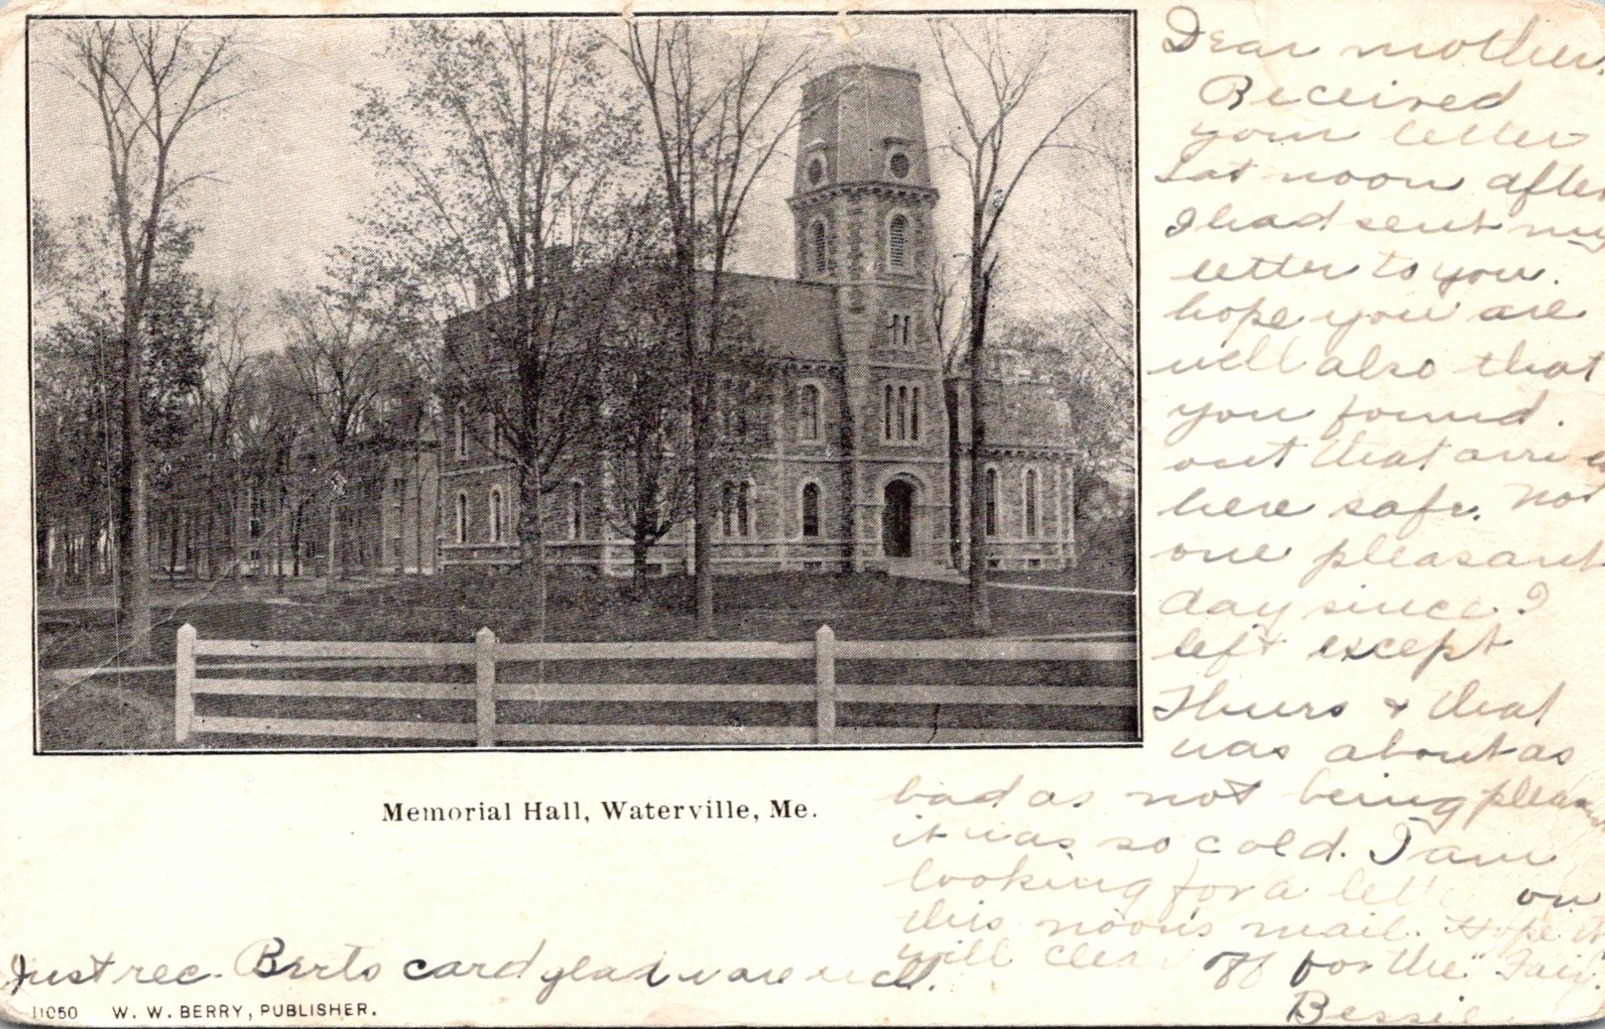 Dear mother.
Received
your letter
Sat noon after
I had sent my
letter to you.
hope you are
well also that
you found.
out that arrived
here safe. Not
one pleasant
day since I
left except
Thurs & that
was about as
bad as not being pleasant
it was so cold. I am
looking for a letter on
this noon's mail. Hope it
will clear off for the Fair.
Bessie
Memorial Hall, Waterville, Me.
Just rec. Berts card glad u are well.
11050 W. W. BERRY, PUBLISHER.